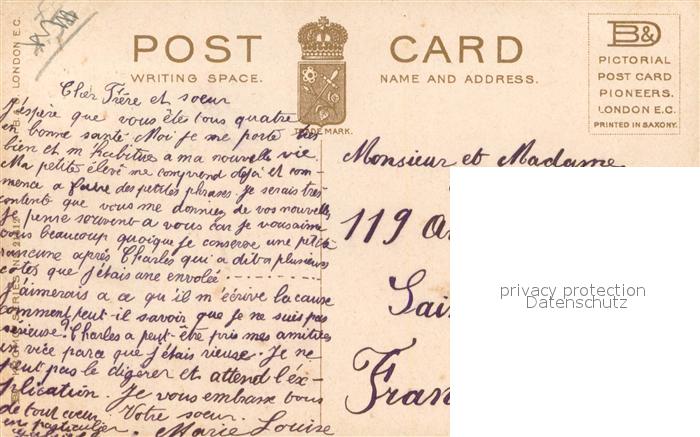 POST CARD
WRITING SPACE.
NAME AND ADDRESS.
TRADE MARK.
B&D
PICTORIAL
POST CARD
PIONEERS.
LONDON E.C.
PRINTED IN SAXONY.
LONDON E.C.
Cher Frère et soeur
J'espère que vous êtes tous quatre
en bonne santé. Moi je me porte très
bien et m'habitue a ma nouvelle vie.
Ma petite élève me comprend déjà et com-
mence a faire des petites phrases. Je serais très
contente que vous me donniez de vos nouvelles
je pense souvent a vous car je vous aime
tous beaucoup quoique je conserve une petite
rancune après Charles qui a dit a plusieurs
côtés que j'étais une envolée
j'aimerais a ce qu'il m'écrive la cause
comment peut-il savoir que je ne suis pas
sérieuse? Charles a peut-être pris mes amitiés
en vice parce que j'étais rieuse. Je ne
peut pas le digérer et attend l'ex-
plication. Je vous embrasse tous
de tout coeur. Votre soeur.
en particulier
Marie Louise
Monsieur et Madame
119
Sain
Fran
privacy protection
Datenschutz